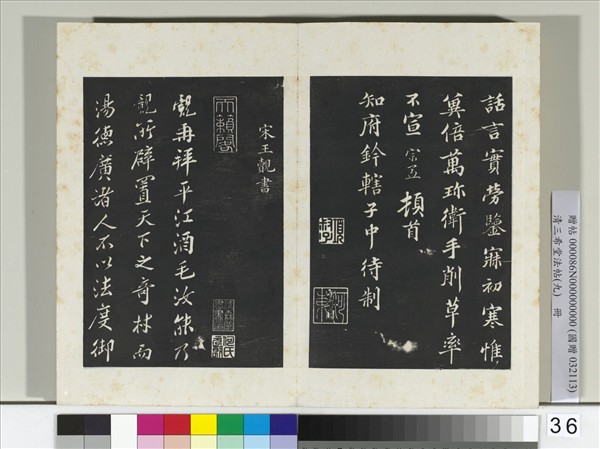 話言實勞鑒寐初寒惟
冀倍萬珎衛手削草率
不宣 宗孟 頓首
知府鈐轄子中待制
天籟閣
宋王覿書
覿再拜平江酒毛汝能乃
親所辟置天下之奇材而
湯德廣渚人不以法度御
贈帖 000086N000000000 (國贈 032113)
清三希堂法帖(九) 冊
36